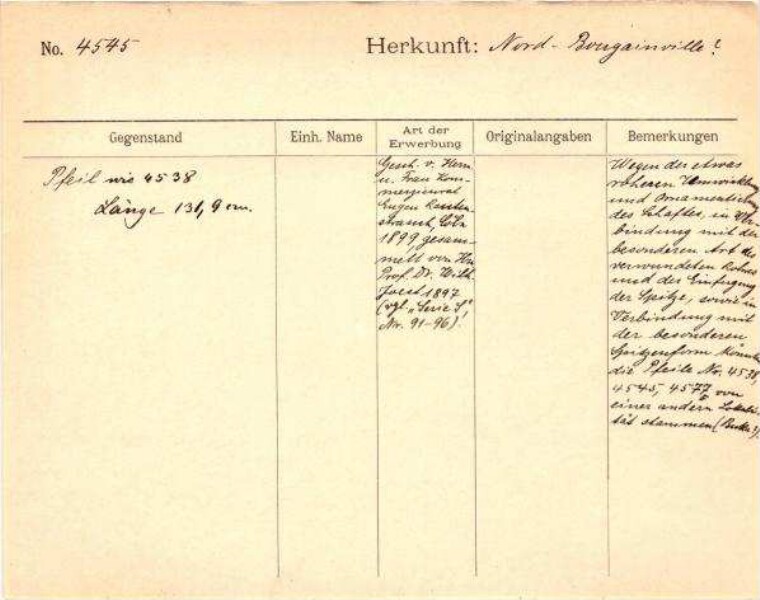 No. 4545
Herkunft: Nord-Bougainville?
Gegenstand
Einh. Name
Art der
Erwerbung
Originalangaben
Bemerkungen
Pfeil wie 4538
Länge 131,9 cm.
Gesch. v. Herrn
u. Frau Kom-
merzienrat
Eugen Rauten-
strauch, Cöln
1899, gesam-
melt von Hn
Prof. Dr. Wilh.
Joest 1897
(vgl. „Serie S",
Nr. 91-96).
Wegen der etwas
roheren Umwicklung
und Ornamentierung
des Schaftes, in Ver-
bindung mit der
besonderen Art des
verwendeten Rohres
und der Einfügung
der Spitze, sowie in
Verbindung mit
der besonderen
Spitzenform könnten
die Pfeile No. 4538,
4545, 4577 von
einer andern Lokali-
tät stammen (Buka?).